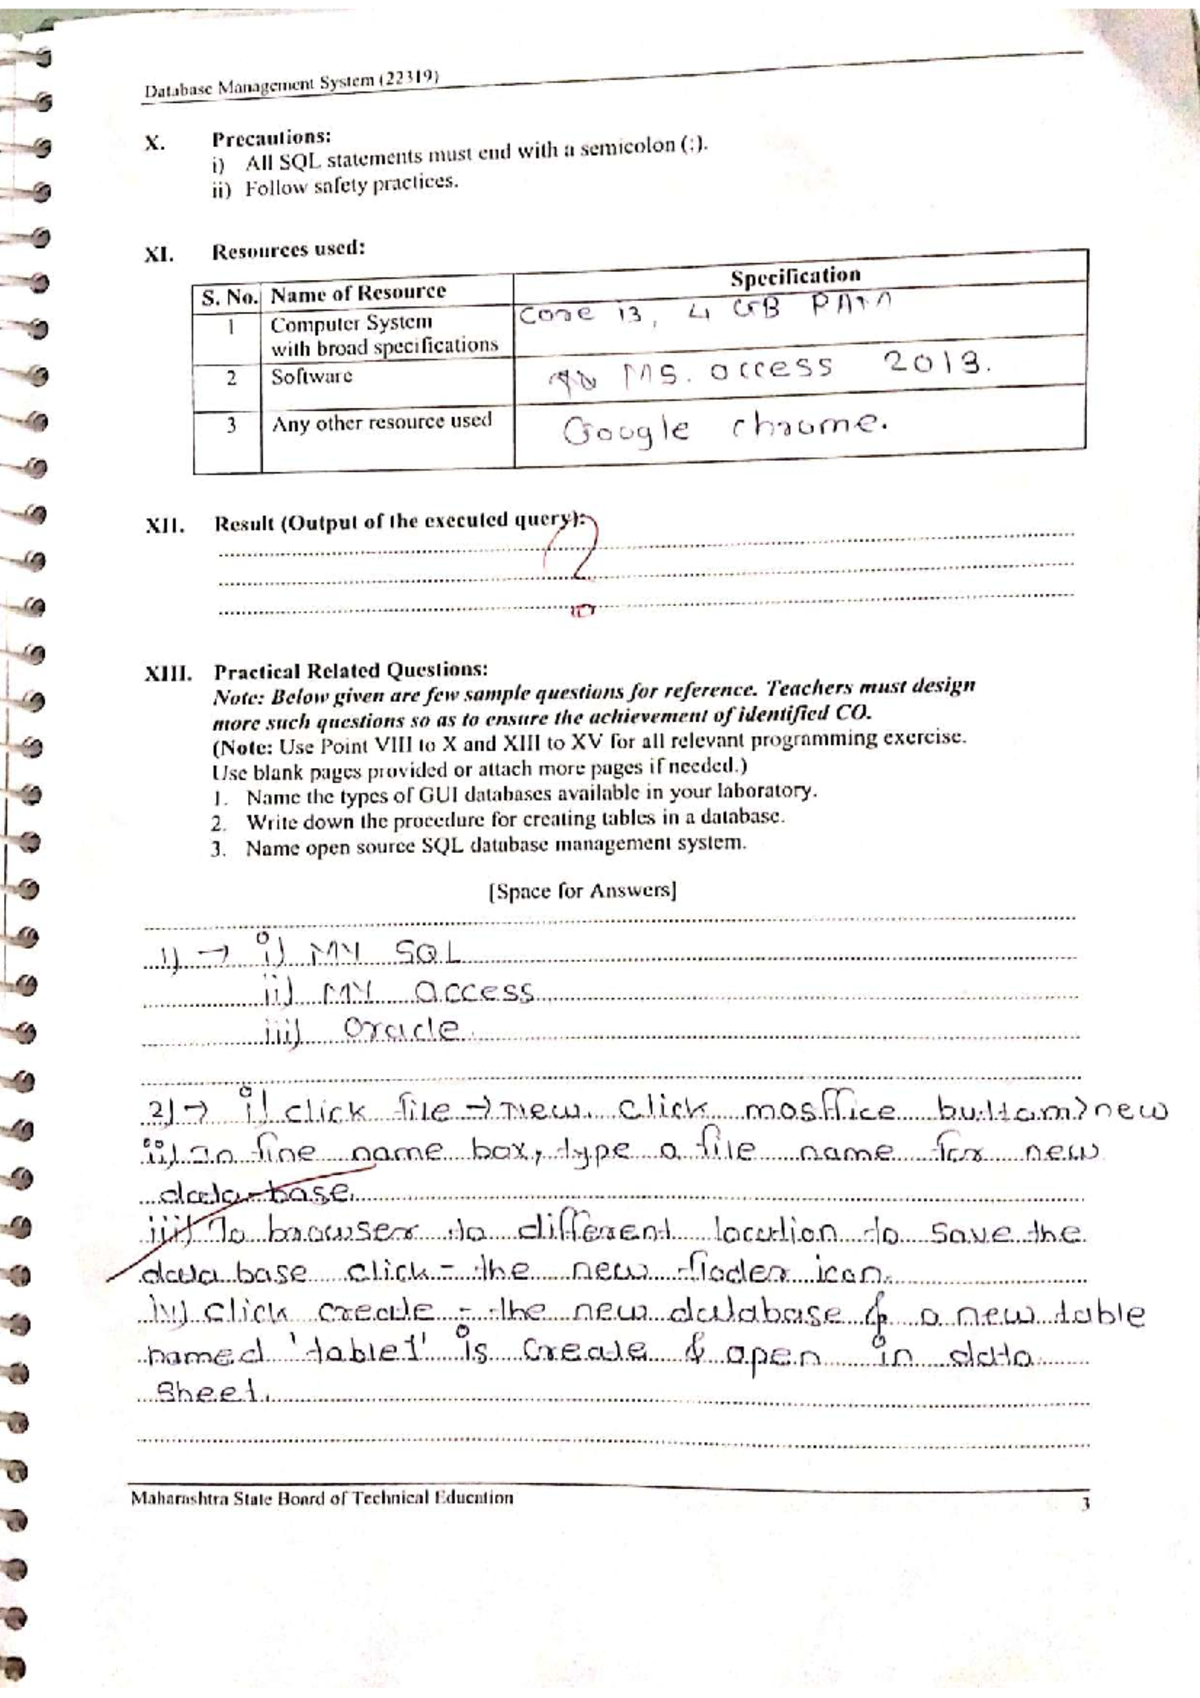 Database Management System (22319)
X. Precautions:
i) All SQL statements must end with a semicolon (;).
ii) Follow safety practices.
XI. Resources used:
S. No. Name of Resource Specification
1 Computer System with broad specifications Core i3, 4 GB RAM
2 Software MS. access 2013.
3 Any other resource used Google chrome.
XII. Result (Output of the executed query):
?
XIII. Practical Related Questions:
Note: Below given are few sample questions for reference. Teachers must design
more such questions so as to ensure the achievement of identified CO.
(Note: Use Point VIII to X and XIII to XV for all relevant programming exercise.
Use blank pages provided or attach more pages if needed.)
1. Name the types of GUI databases available in your laboratory.
2. Write down the procedure for creating tables in a database.
3. Name open source SQL database management system.
[Space for Answers]
1) → i) MY SQL
ii) MY access
iii) Oracle.
2) → i) click file → New. Click mosffice buttom > new
ii) In fine name box, type a file name for new
data-base.
iii) To browser to different location to save the
data base click - the new floder icon.
iv) Click create - the new database & a new table
named 'table1' is create & open in data
sheet.
Maharashtra State Board of Technical Education 3